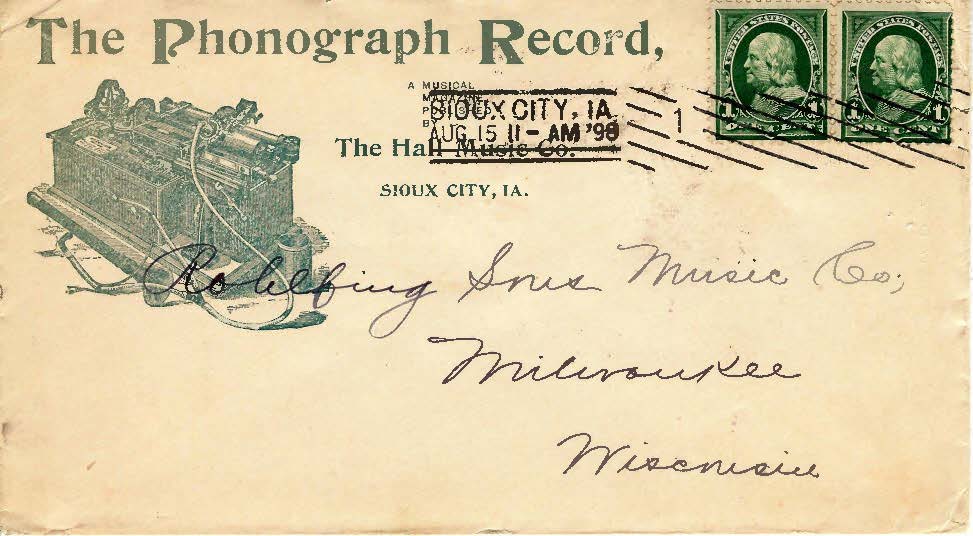 The Phonograph Record,
A MUSICAL
MAGAZINE
PUBLISHED
BY
SIOUX CITY, IA.
AUG. 15 11-AM '98
1
The Hall Music Co.
SIOUX CITY, IA.
UNITED STATES POSTAGE
1 ONE CENT 1
UNITED STATES POSTAGE
1 ONE CENT 1
Rohlfing Sons Music Co;
Milwaukee
Wisconsin